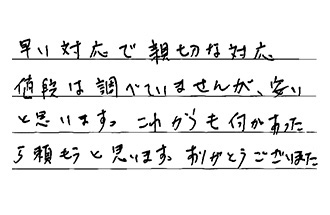 早い対応で親切な対応
値段は調べていませんが、安い
と思います。これからも何かあった
ら頼もうと思います。ありがとうございました